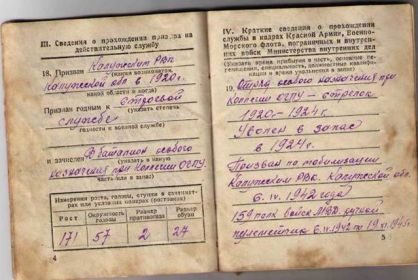 III. Сведения о прохождении призыва на
действительную службу
18. Призван Калужским РВК
(каким военкоматом
Калужской обл в 1920 г.
какой области и когда)
Признан годным к строевой
(указать степень
службе
годности к военной службе)
и зачислен В батальон особого
(указать в какую
назначения при Коллегии ОГПУ
часть или в запас)
Измерения роста, головы, ступни в сантимет-
рах или условных номерах (ростовках)
Рост
Окружность головы
Размер противогаза
Размер обуви
171 57 2 27
4
IV. Краткие сведения о прохождении
службы в кадрах Красной Армии, Военно-
Морского флота, пограничных и внутрен-
них войск Министерства внутренних дел
(Указать время прибытия в часть, основные пе-
ремещения, специальность, должностные квалифи-
кации и время увольнения в запас)
19. особого назначения при
Коллегии ОГПУ - стрелок
1920-1924 г.
Уволен в запас
в 1924 г.
Призван по мобилизации
Калужским РВК. Калужской обл.
6. IV. 1942 года
159 полк войск МВД. ручной
пулеметчик 6.IV.1942 по 19.XI.1945 г.
5